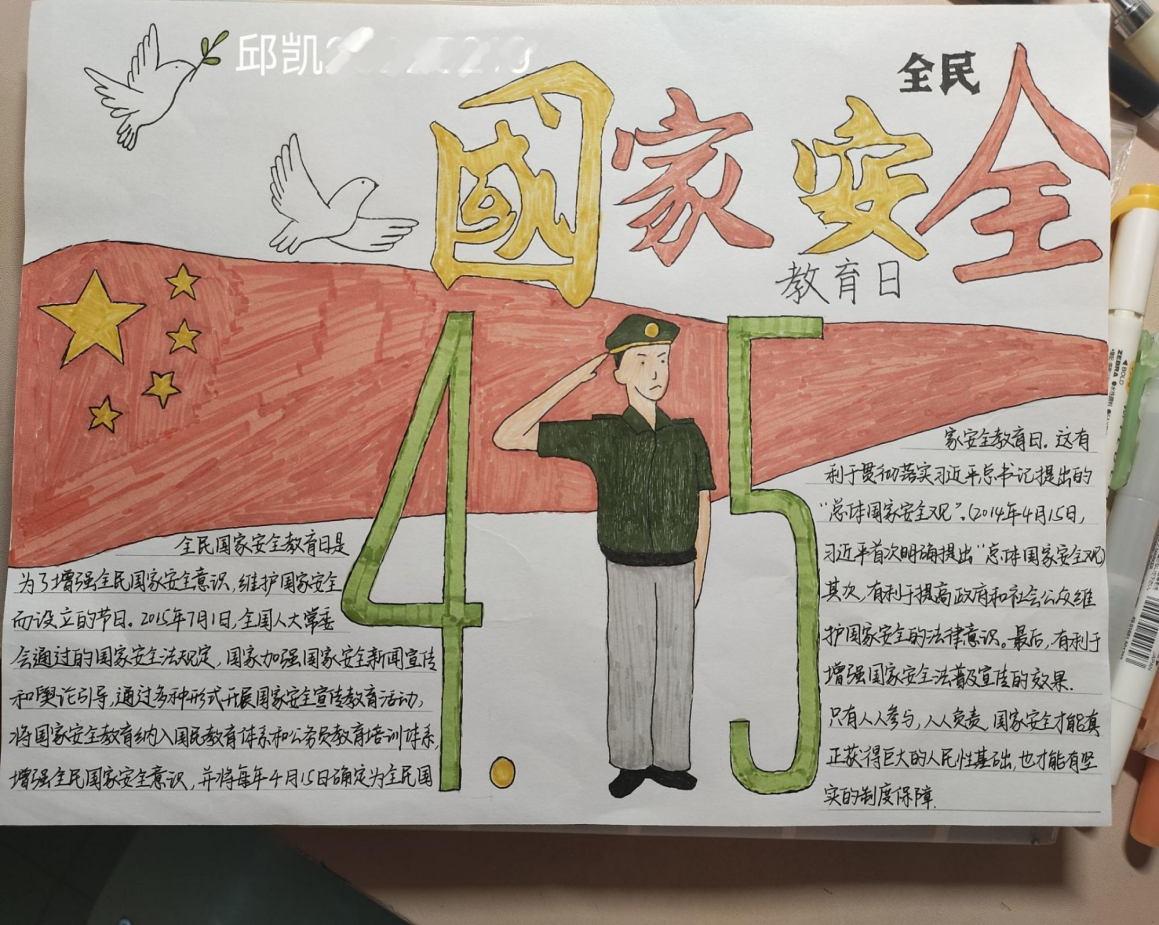 邱凯
全民
國家安全
教育日
4.15
全民国家安全教育日是
为了增强全民国家安全意识，维护国家安全
而设立的节日。2015年7月1日，全国人大常委
会通过的国家安全法规定，国家加强国家安全新闻宣传
和舆论引导，通过多种形式开展国家安全宣传教育活动，
将国家安全教育纳入国民教育体系和公务员教育培训体系，
增强全民国家安全意识，并将每年4月15日确定为全民国
家安全教育日。这有
利于贯彻落实习近平总书记提出的
“总体国家安全观”。（2014年4月15日，
习近平首次明确提出“总体国家安全观）
其次，有利于提高政府和社会公众维
护国家安全的法律意识。最后，有利于
增强国家安全法普及宣传的效果。
只有人人参与，人人负责，国家安全才能真
正获得巨大的人民性基础，也才能有坚
实的制度保障
ZEBRA